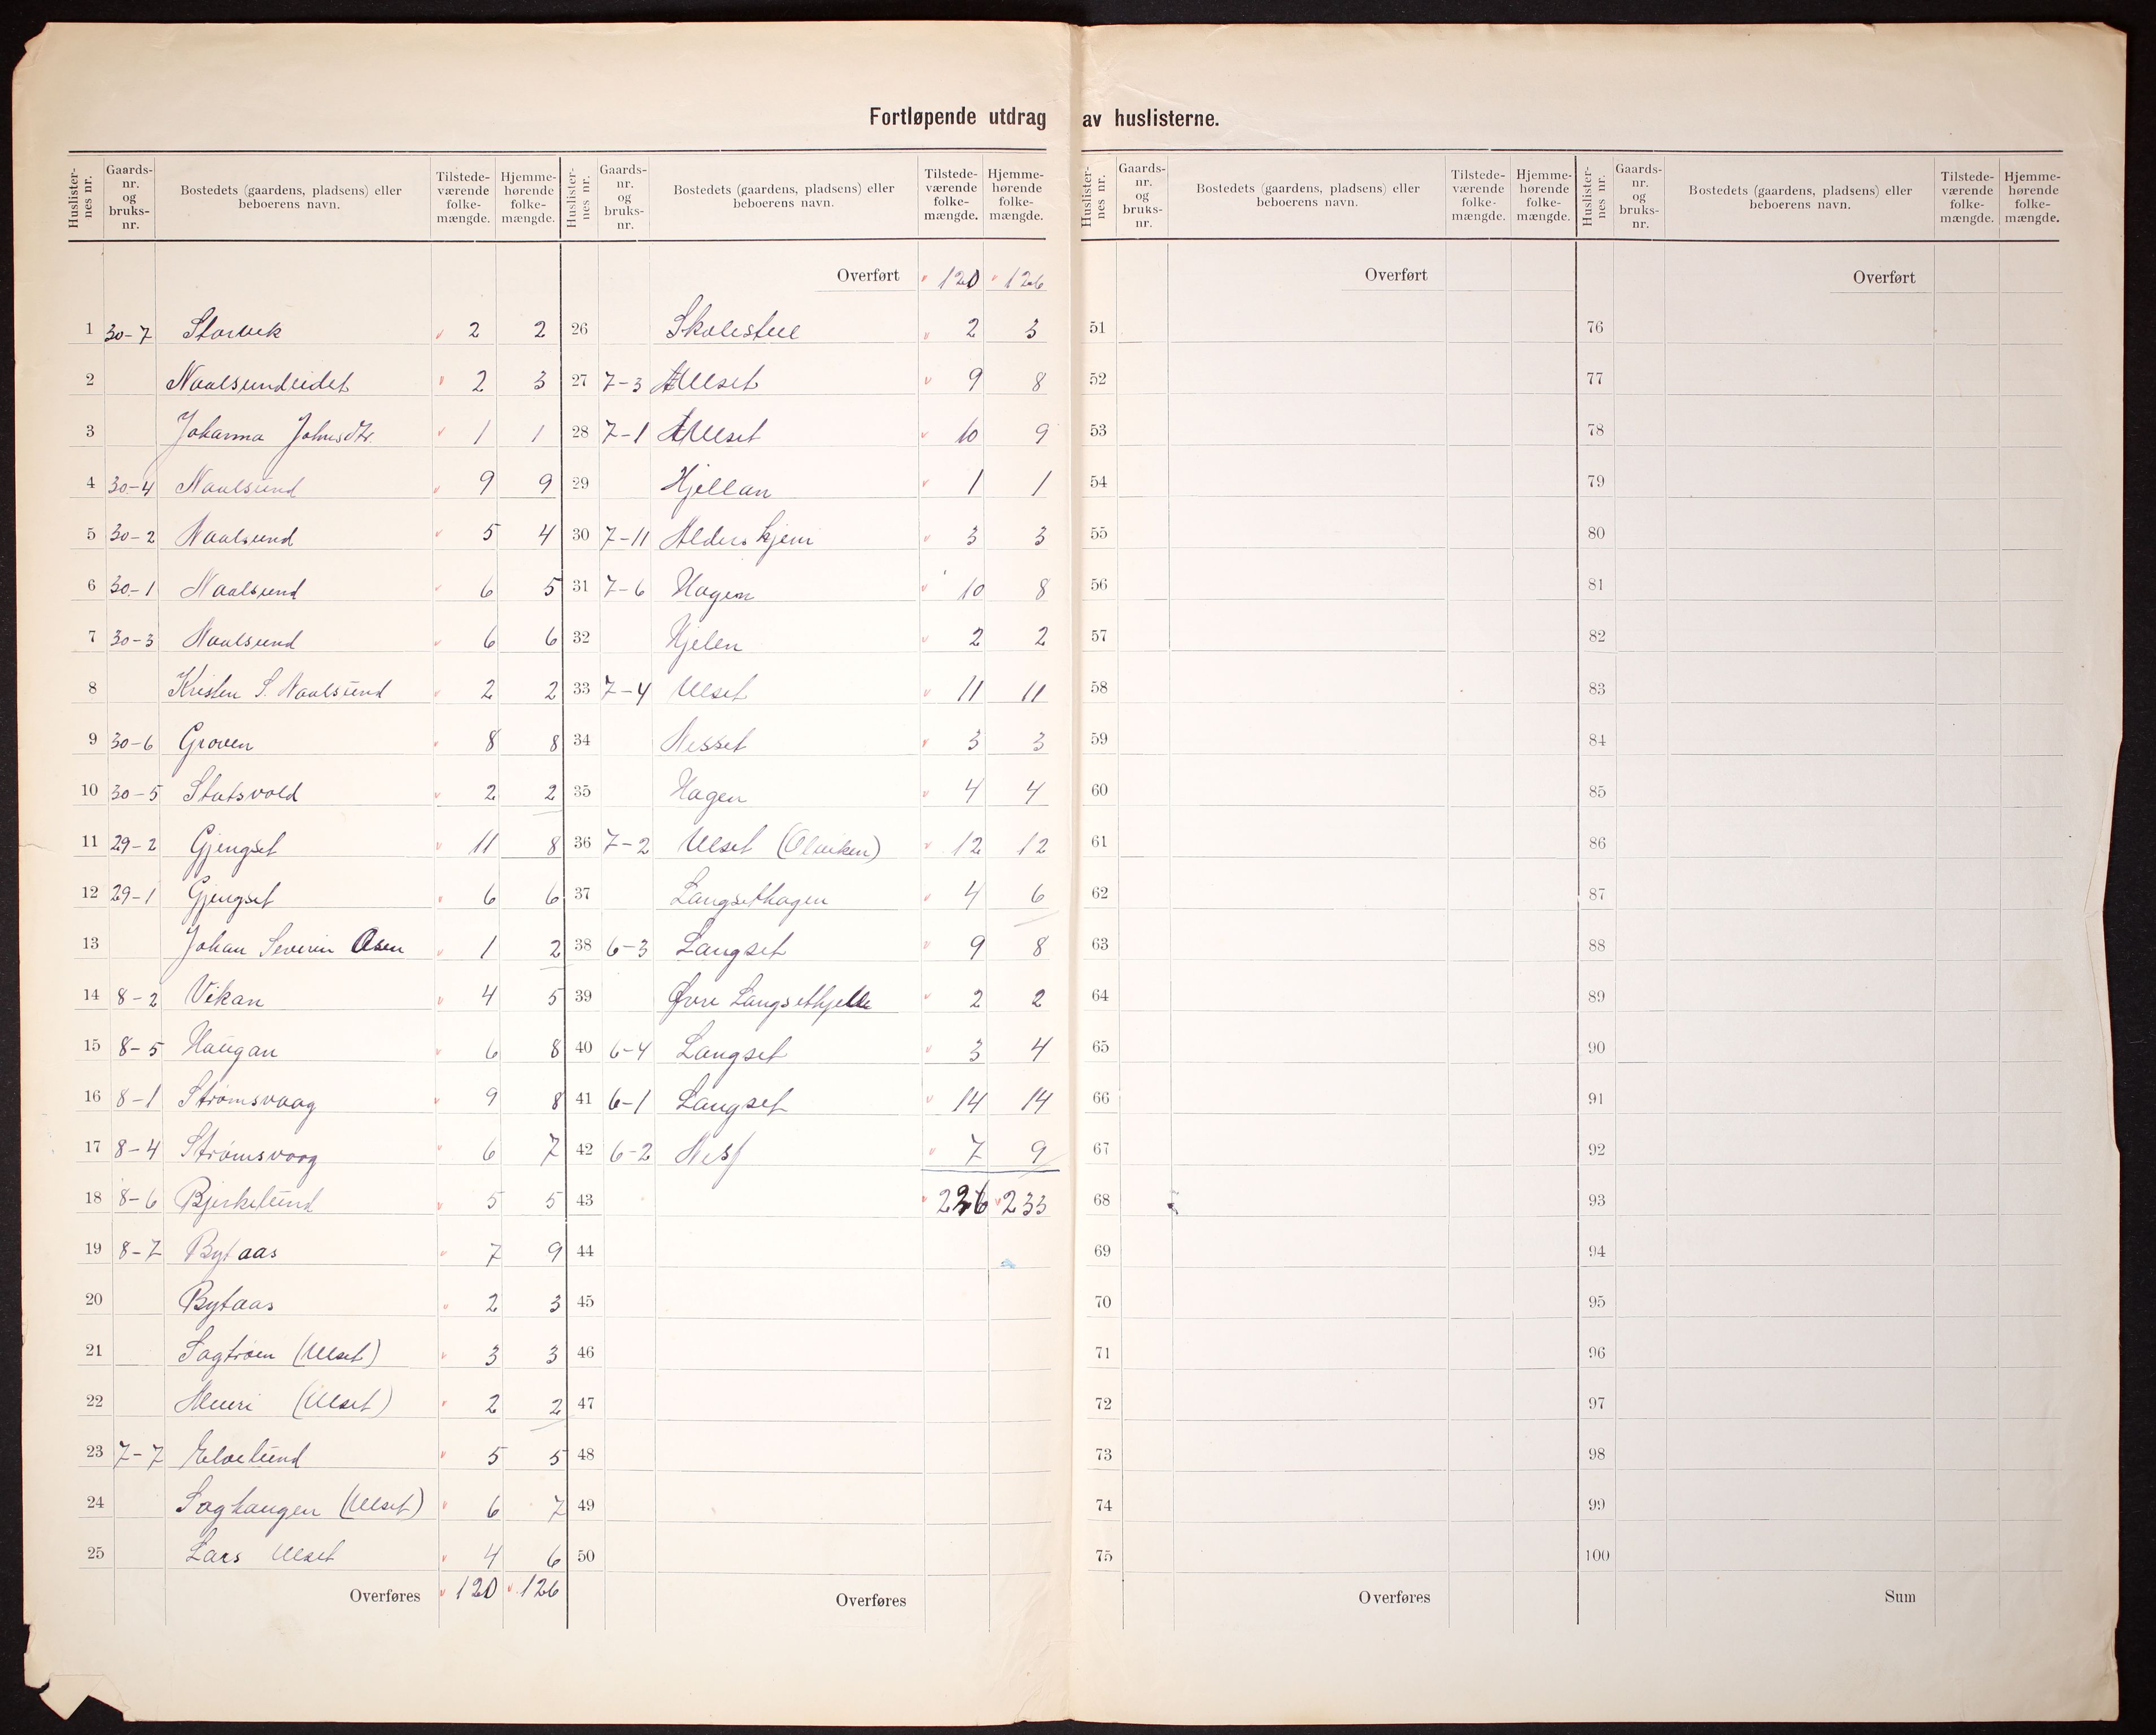 Fortløpende utdrag av huslisterne.
Huslisternes nr. Gaards-nr. og bruks-nr. Bostedets (gaardens, pladsens) eller beboerens navn. Tilstede-værende folke-mængde. Hjemme-hørende folke-mængde.
1 30-7 Storvik 2 2
2 Naalsundeidet 2 3
3 Johanna Johnsdtr. 1 1
4 30-4 Naalsund 9 9
5 30-2 Naalsund 5 4
6 30-1 Naalsund 6 5
7 30-3 Naalsund 6 6
8 Kristen S. Naalsund 2 2
9 30-6 Groven 8 8
10 30-5 Statsvold 2 2
11 29-2 Gjengset 11 8
12 29-1 Gjengset 6 6
13 Johan Severin Asen 1 2
14 8-2 Vikan 4 5
15 8-5 Haugan 6 8
16 8-1 Strømsvaag 9 8
17 8-4 Strømsvaag 6 7
18 8-6 Bjerkelund 5 5
19 8-7 Bytaas 7 9
20 Bytaas 2 3
21 Sagtrøen (Ulset) 3 3
22 (Ulset) 2 2
23 7-7 Elvelund 5 5
24 Saghaugen (Ulset) 6 7
25 Lars Ulset 4 6
Overføres 120 126
Huslisternes nr. Gaards-nr. og bruks-nr. Bostedets (gaardens, pladsens) eller beboerens navn. Tilstede-værende folke-mængde. Hjemme-hørende folke-mængde.
Overført 120 126
26 Skolestue 2 3
27 7-3 Ulset 9 8
28 7-1 Ulset 10 9
29 Hjellan 1 1
30 7-11 Alderskjem 3 3
31 7-6 Hagen 10 8
32 Hjelen 2 2
33 7-4 Ulset 11 11
34 Nesset 3 3
35 Hagen 4 4
36 7-2 Ulset (Olviken) 12 12
37 Langsethagen 4 6
38 6-3 Langset 9 8
39 Øvre Langsethjelle 2 2
40 6-4 Langset 3 4
41 6-1 Langset 14 14
42 6-2 Nes 7 9
43 226 233
44
45
46
47
48
49
50
Overføres
Huslisternes nr. Gaards-nr. og bruks-nr. Bostedets (gaardens, pladsens) eller beboerens navn. Tilstede-værende folke-mængde. Hjemme-hørende folke-mængde.
Overført
51
52
53
54
55
56
57
58
59
60
61
62
63
64
65
66
67
68
69
70
71
72
73
74
75
Overføres
Huslisternes nr. Gaards-nr. og bruks-nr. Bostedets (gaardens, pladsens) eller beboerens navn. Tilstede-værende folke-mængde. Hjemme-hørende folke-mængde.
Overført
76
77
78
79
80
81
82
83
84
85
86
87
88
89
90
91
92
93
94
95
96
97
98
99
100
Sum